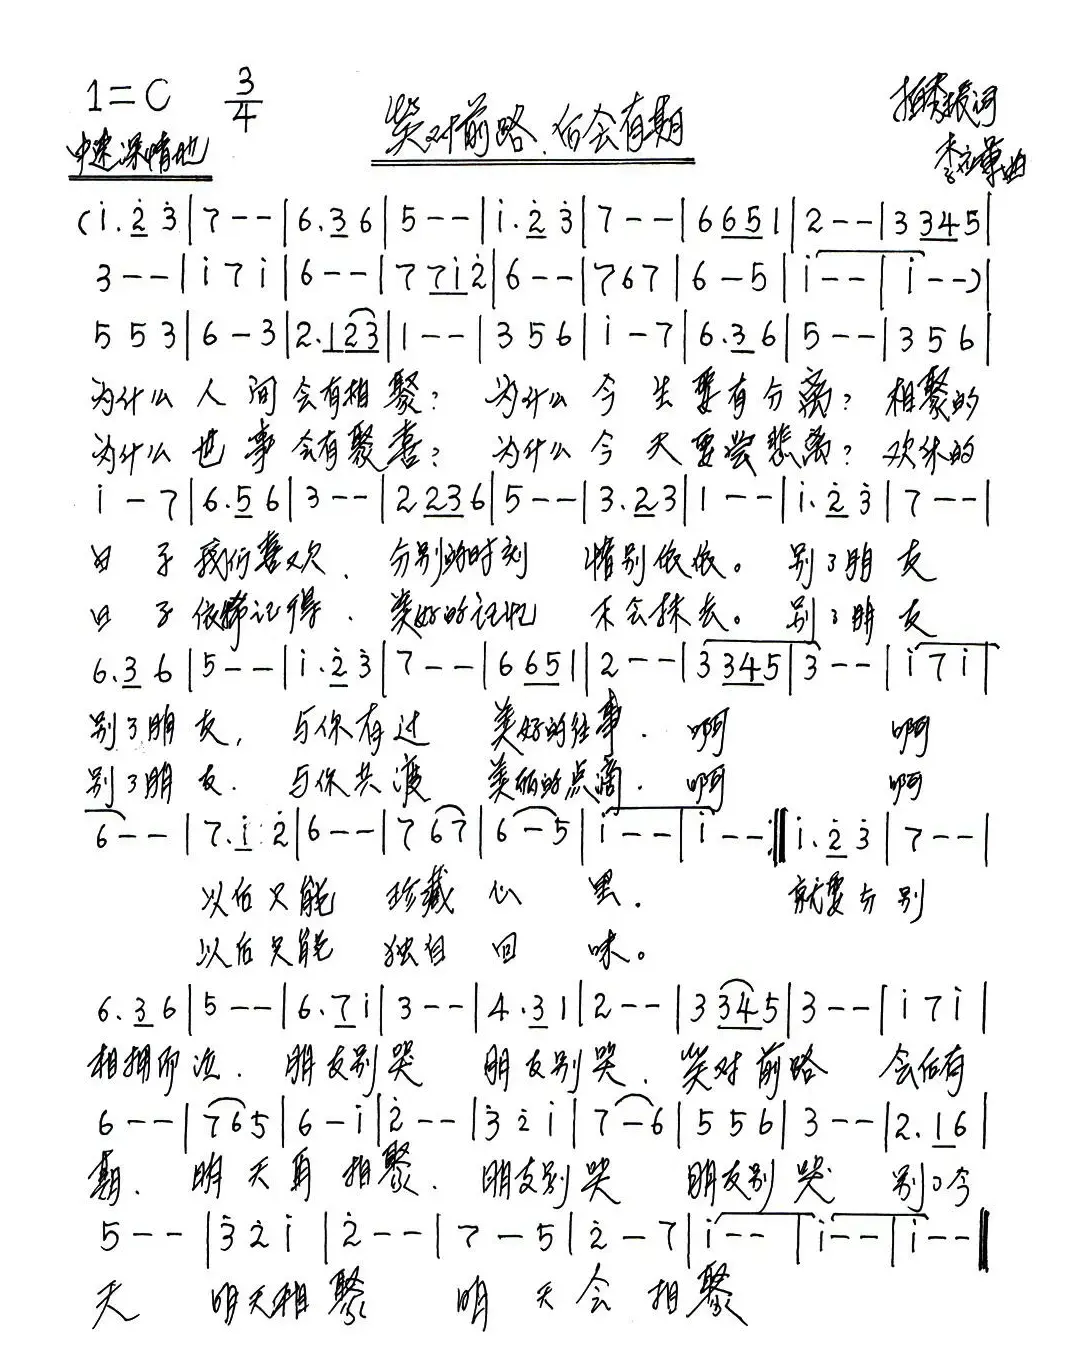 1=C 3/4 笑对前路、后会有期
中速深情地
词
曲
(i.2̇ 3̇|7 - -|6.3 6|5 - -|i.2̇ 3̇|7 - -|6 6 5 1|2 - -|3 3 4 5|
3 - -|i 7 i|6 - -|7 7 i 2̇|6 - -|7 6 7|6 - 5|i - -|i - -)|
5 5 3|6 - 3|2.1 2 3|1 - -|3 5 6|i - 7|6.3 6|5 - -|3 5 6|
为什么 人 间 会有相聚? 为什么 今 生 要有分离? 相聚的
为什么 世 事 会有聚喜? 为什么 今 天 要尝悲离? 欢休的
i - 7|6.5 6|3 - -|2 2 3 6|5 - -|3.2 3|1 - -|i.2̇ 3̇|7 - -|
日 子 我们喜欢、 分别的时刻 惜别依依。 别了朋 友
日 子 依稀记得、 美好的记忆 不会抹去。 别了朋 友
6.3 6|5 - -|i.2̇ 3̇|7 - -|6 6 5 1|2 - -|3 3 4 5|3 - -|i 7 i|
别了朋 友, 与你有过 美好的往事、 啊 啊
别了朋 友、 与你共渡 美丽的点滴、 啊 啊
6 - -|7.i 2̇|6 - -|7 6 7|6 - 5|i - -|i - -:‖i.2̇ 3̇|7 - -|
以后只能 珍藏 心 里、 就要分别
以后只能 独自 回 味。
6.3 6|5 - -|6.7 i|3 - -|4.3 1|2 - -|3 3 4 5|3 - -|i 7 i|
相拥而泣、 朋友别哭 朋友别哭、 笑对前路 会后有
6 - -|7 6 5|6 - i|2̇ - -|3̇ 2̇ i|7 - 6|5 5 6|3 - -|2.1 6|
期、 明天再 相聚、 朋友别哭 朋友别哭 别了今
5 - -|3̇ 2̇ i|2̇ - -|7 - 5|2̇ - 7|i - -|i - -|i - -‖
天 明天相聚 明 天会 相聚